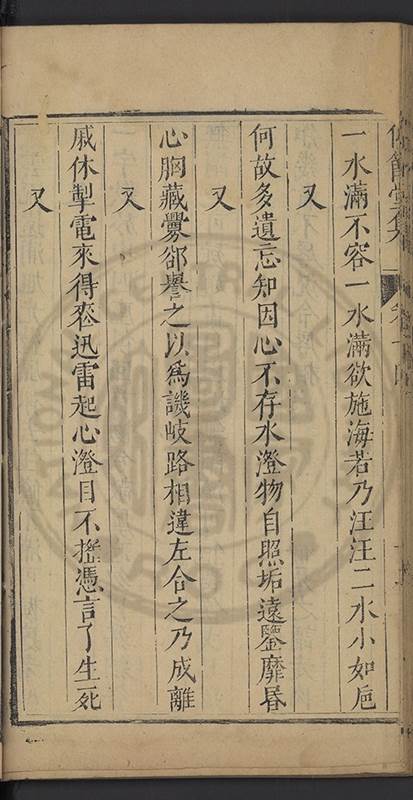 一水滿不容一水滿欲施海若乃汪汪二水小如巵
又
何故多遺忘知因心不存水澄物自照垢遠鑒靡昬
又
心胸藏釁郤譽之以爲譏岐路相違左合之乃成離
又
又
戚休掣電來得喪迅雷起心澄目不搖憑言了生死